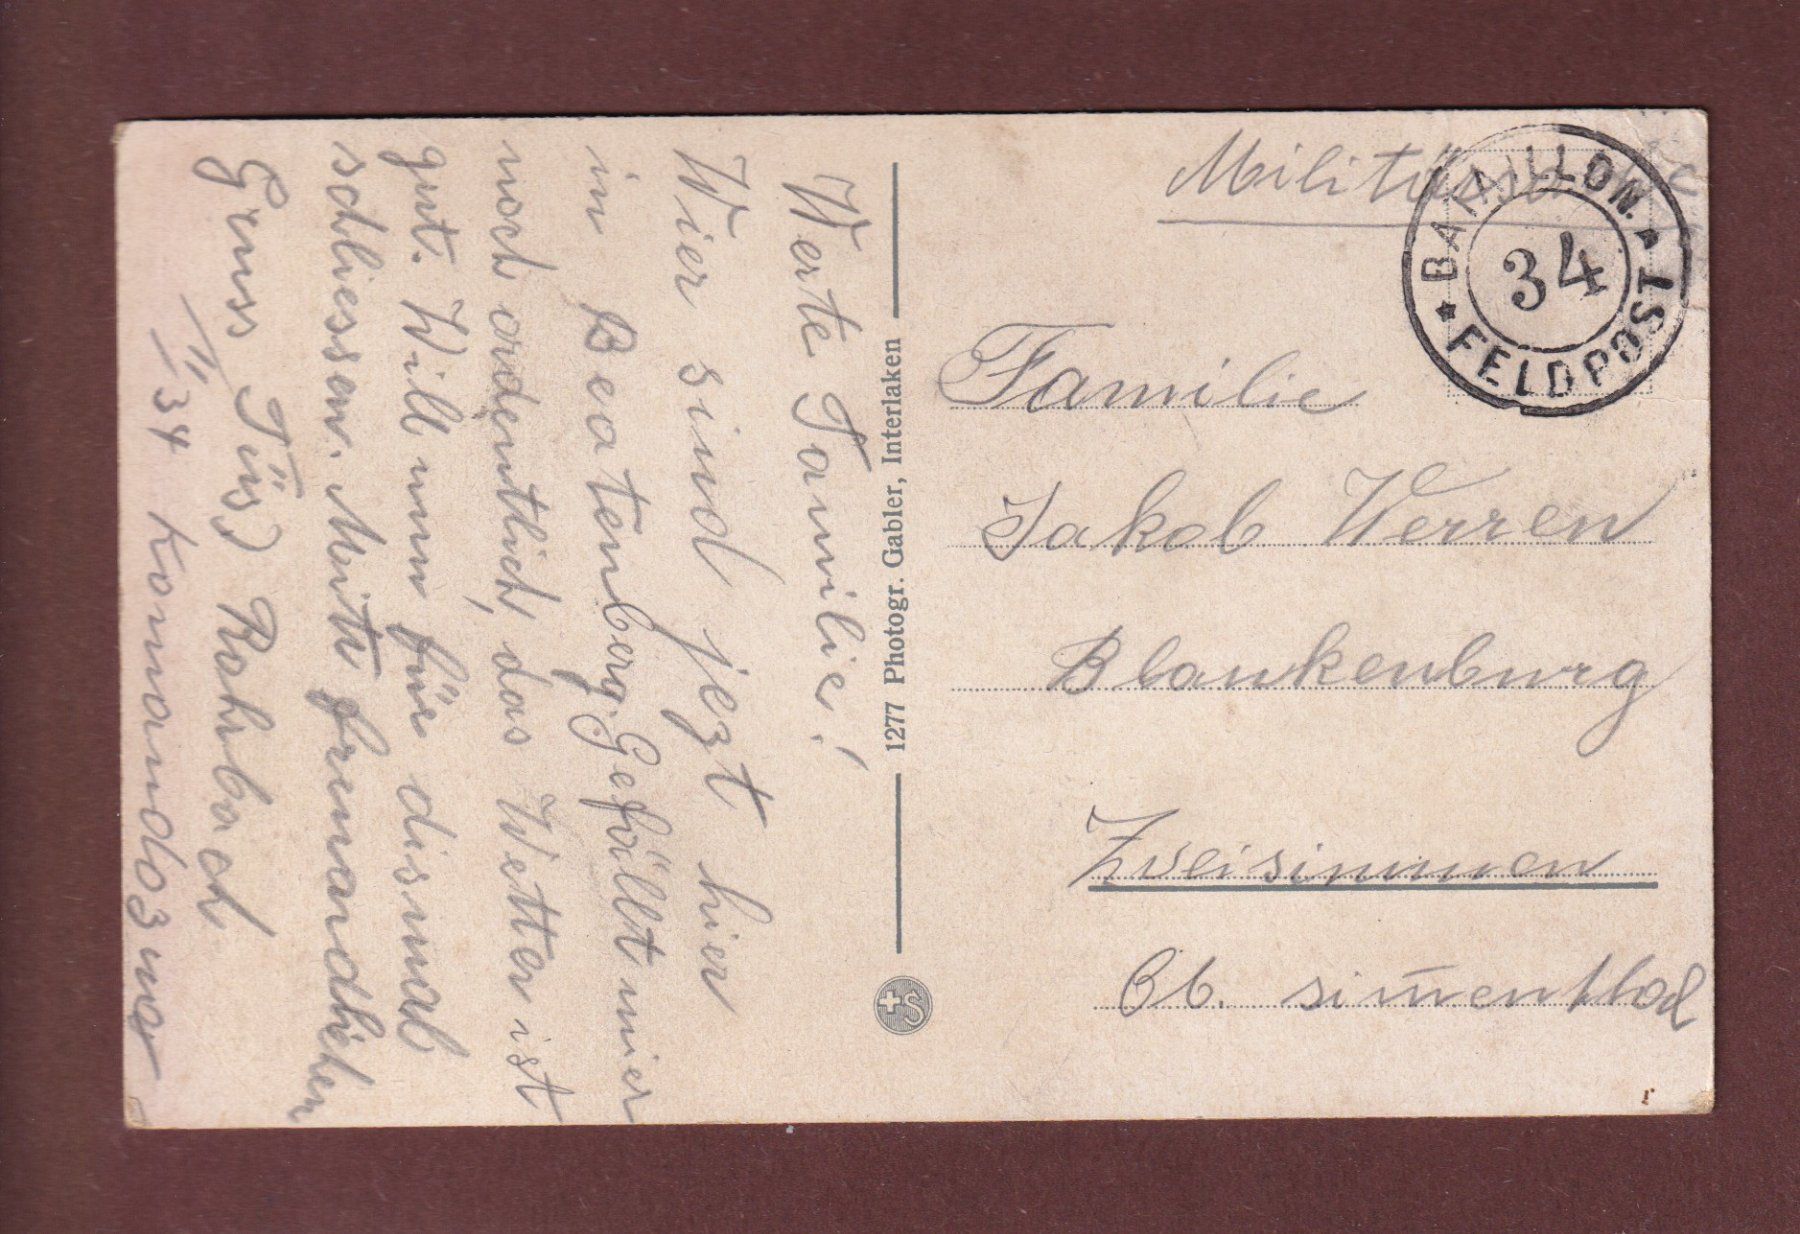 Werte Familie!
Wier sind jezt hier
in Beatenberg. Gefällt mier
noch ordentlich, das Wetter ist
gut. Will nun für dismal
schliessen. Meitt freundlichen
Gruss Rohrbach
II/34
1277 Photogr. Gabler, Interlaken
BATAILLON.
34
FELDPOST
Familie
Jakob Werren
Blankenburg
Zweisimmen
Ob. sim̄enthal